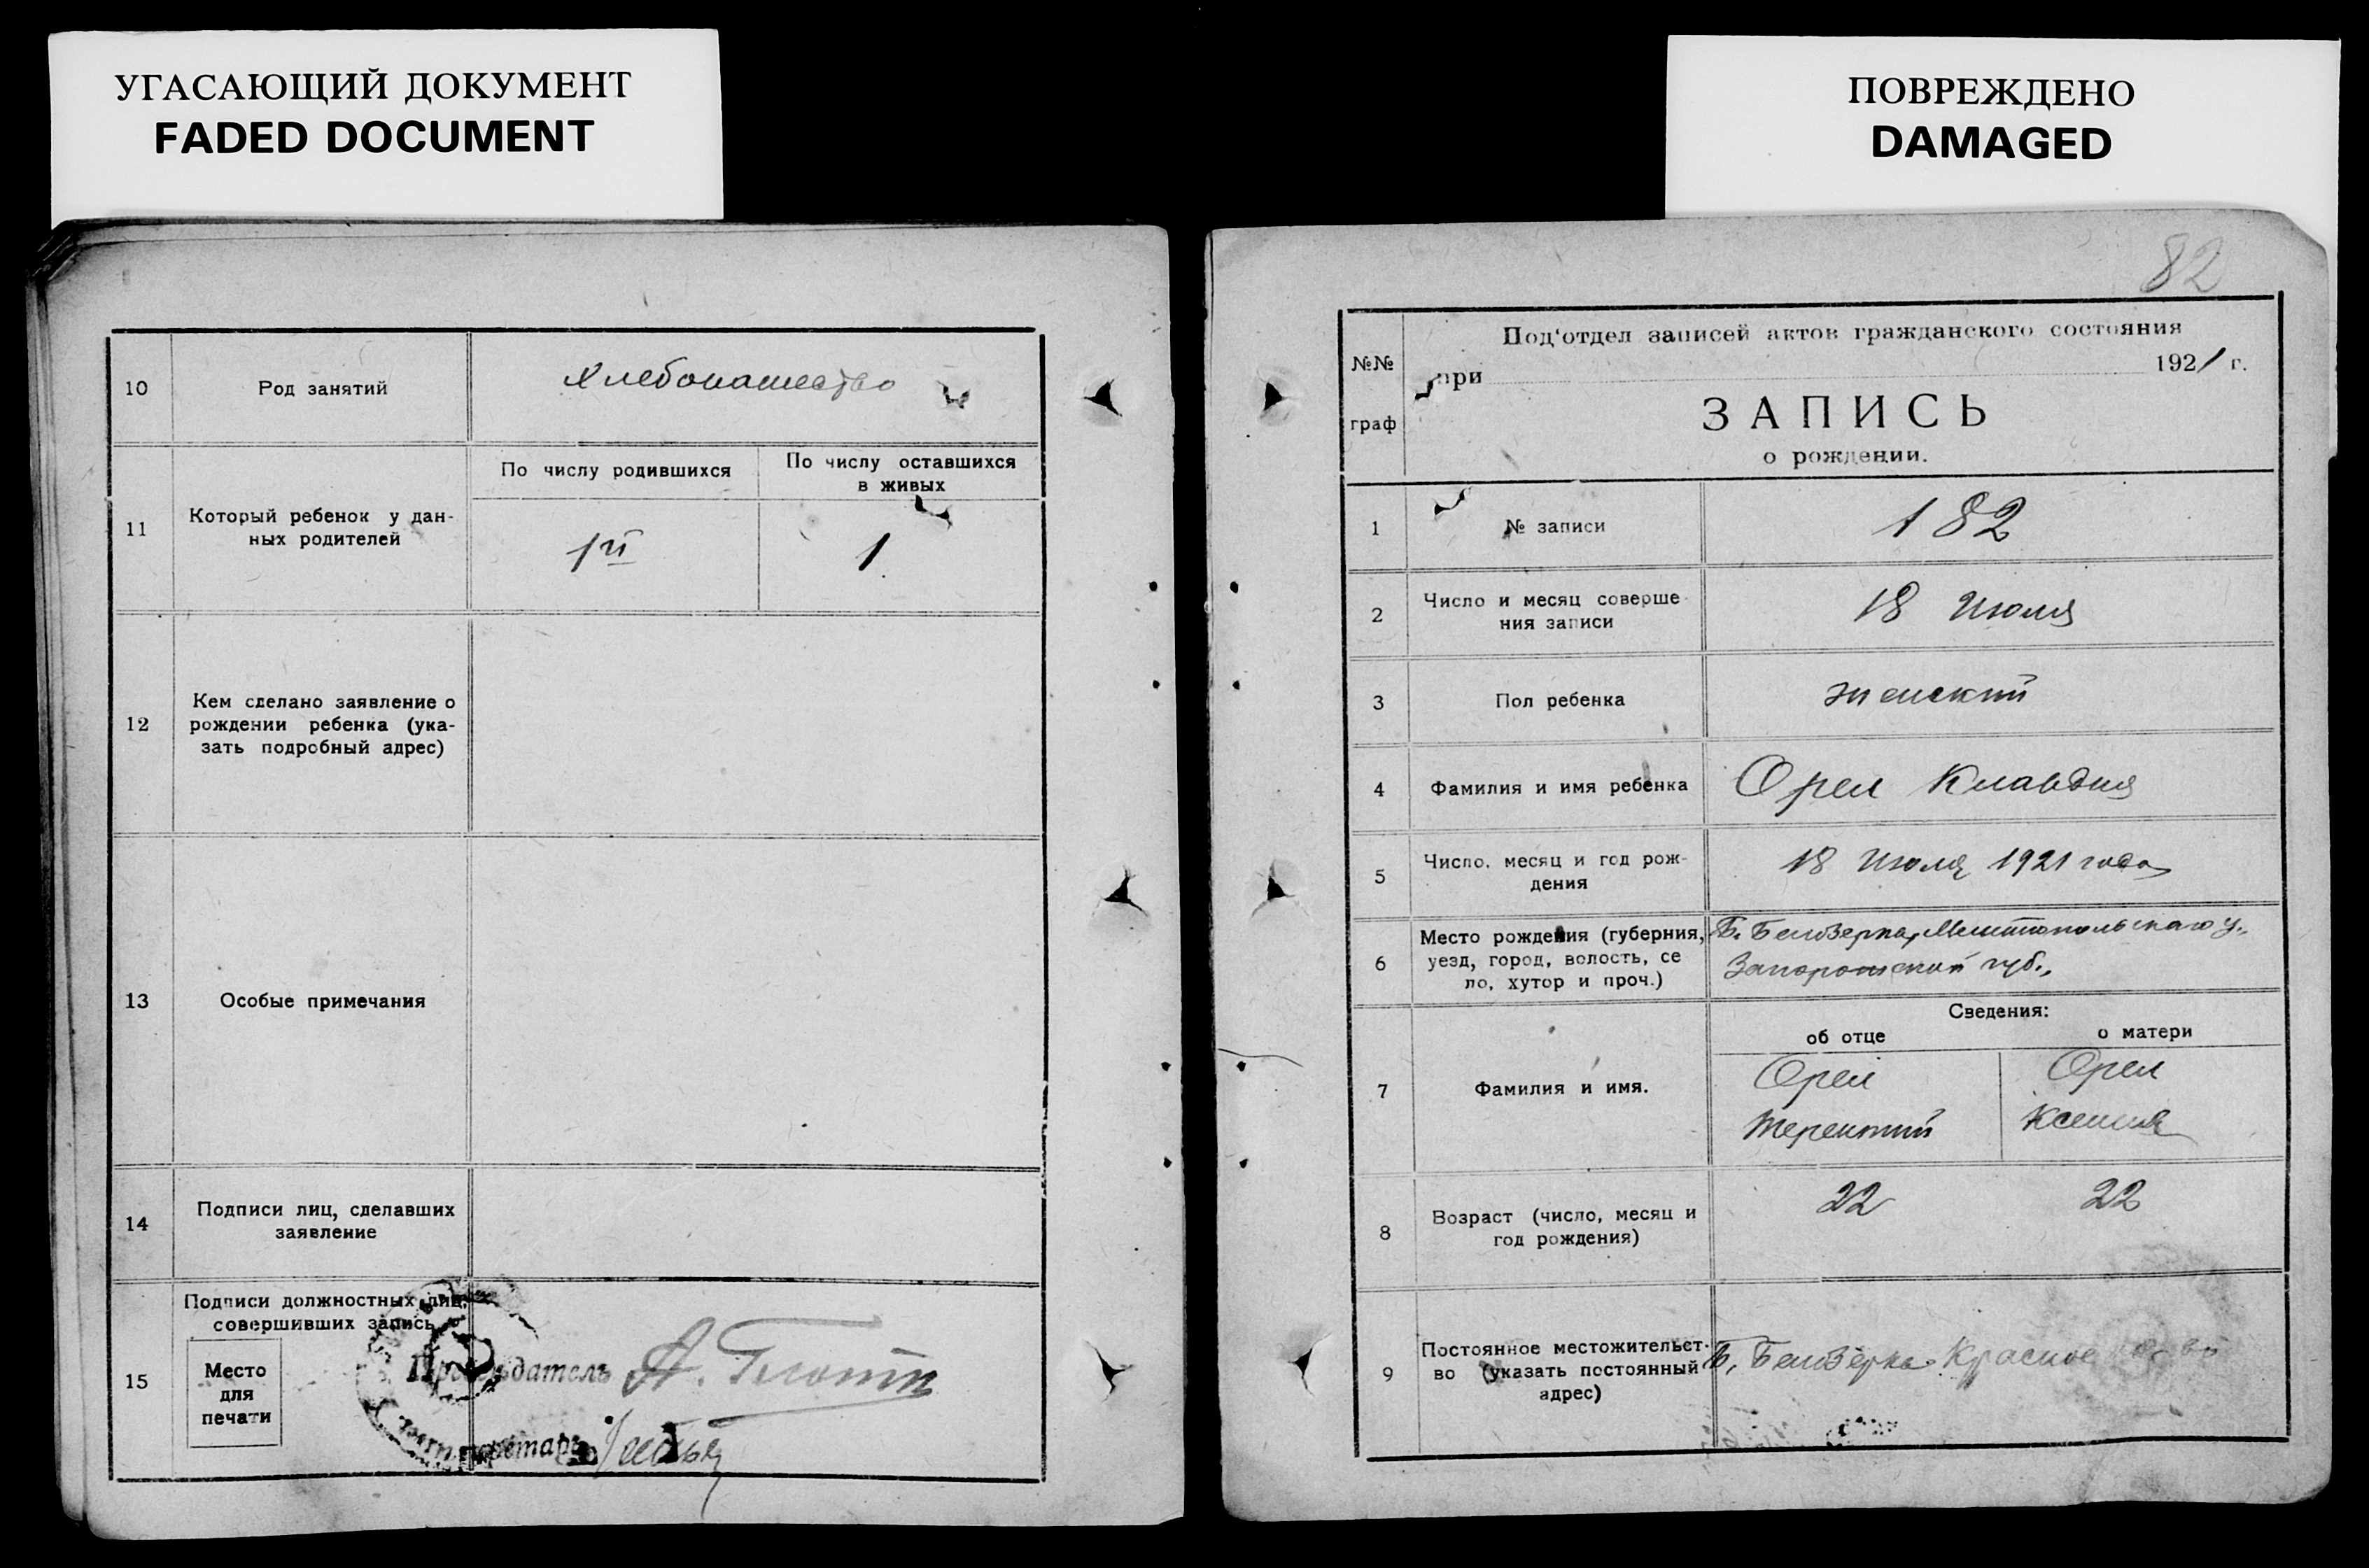 УГАСАЮЩИЙ ДОКУМЕНТ
FADED DOCUMENT
10
Род занятий
Хлебопашество
11
Который ребенок у дан-
ных родителей
По числу родившихся
По числу оставшихся
в живых
1й
1
12
Кем сделано заявление о
рождении ребенка (ука-
зать подробный адрес)
13
Особые примечания
14
Подписи лиц, сделавших
заявление
15
Подписи должностных лиц,
совершивших запись
Место
для
печати
Председатель А.
ПОВРЕЖДЕНО
DAMAGED
82
№№
граф
Под'отдел записей актов гражданского состояния
при 1921 г.
ЗАПИСЬ
о рождении.
1
№ записи
182
2
Число и месяц соверше-
ния записи
18 Июля
3
Пол ребенка
женский
4
Фамилия и имя ребенка
Орел Клавдия
5
Число, месяц и год рож-
дения
18 Июля 1921 года
6
Место рождения (губерния,
уезд, город, волость, се
ло, хутор и проч.)
Б. Белозерка, Мелитопольскаго у.,
Запорожской губ.,
Сведения:
об отце
о матери
7
Фамилия и имя.
Орел
Терентий
Орел
Ксения
8
Возраст (число, месяц и
год рождения)
22
22
9
Постоянное местожительст-
во (указать постоянный
адрес)
Б. Белозерка Красное